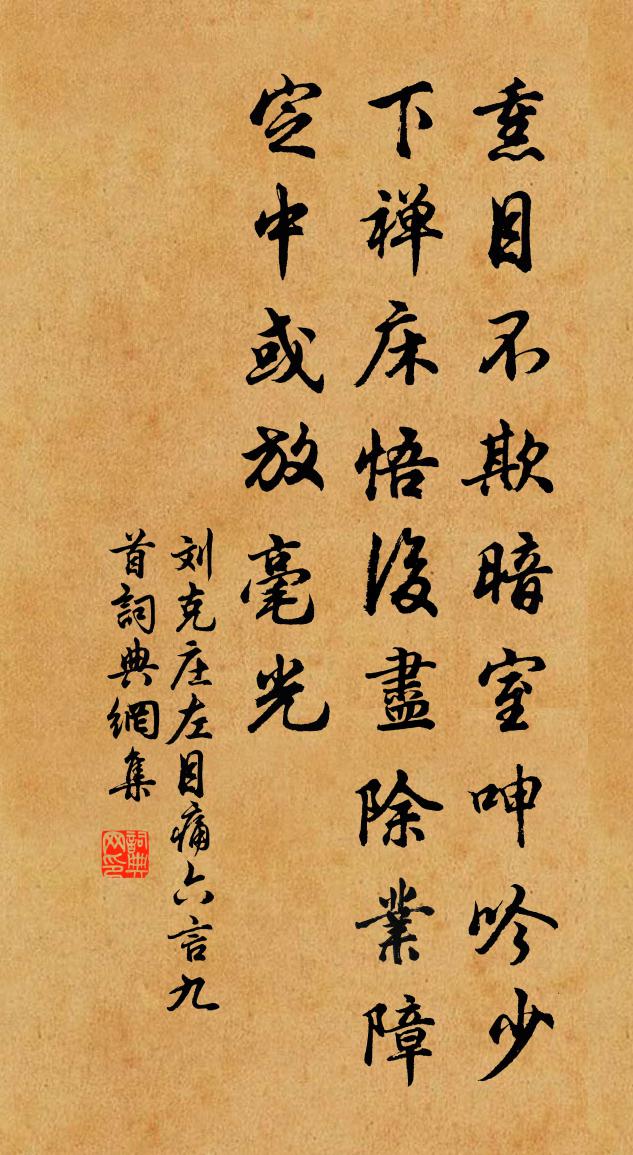 熏目不欺暗室呻吟少
下禅床悟後盡除業障
定中或放毫光
刘克庄左目痛六言九
首詞典網集
詞典
网印